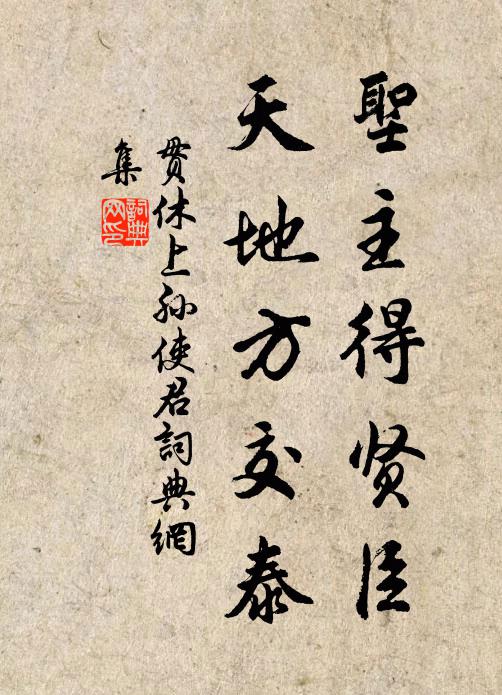 聖主得贤臣
天地方交泰
貫休上孙使君詞典網
集
詞典
网印